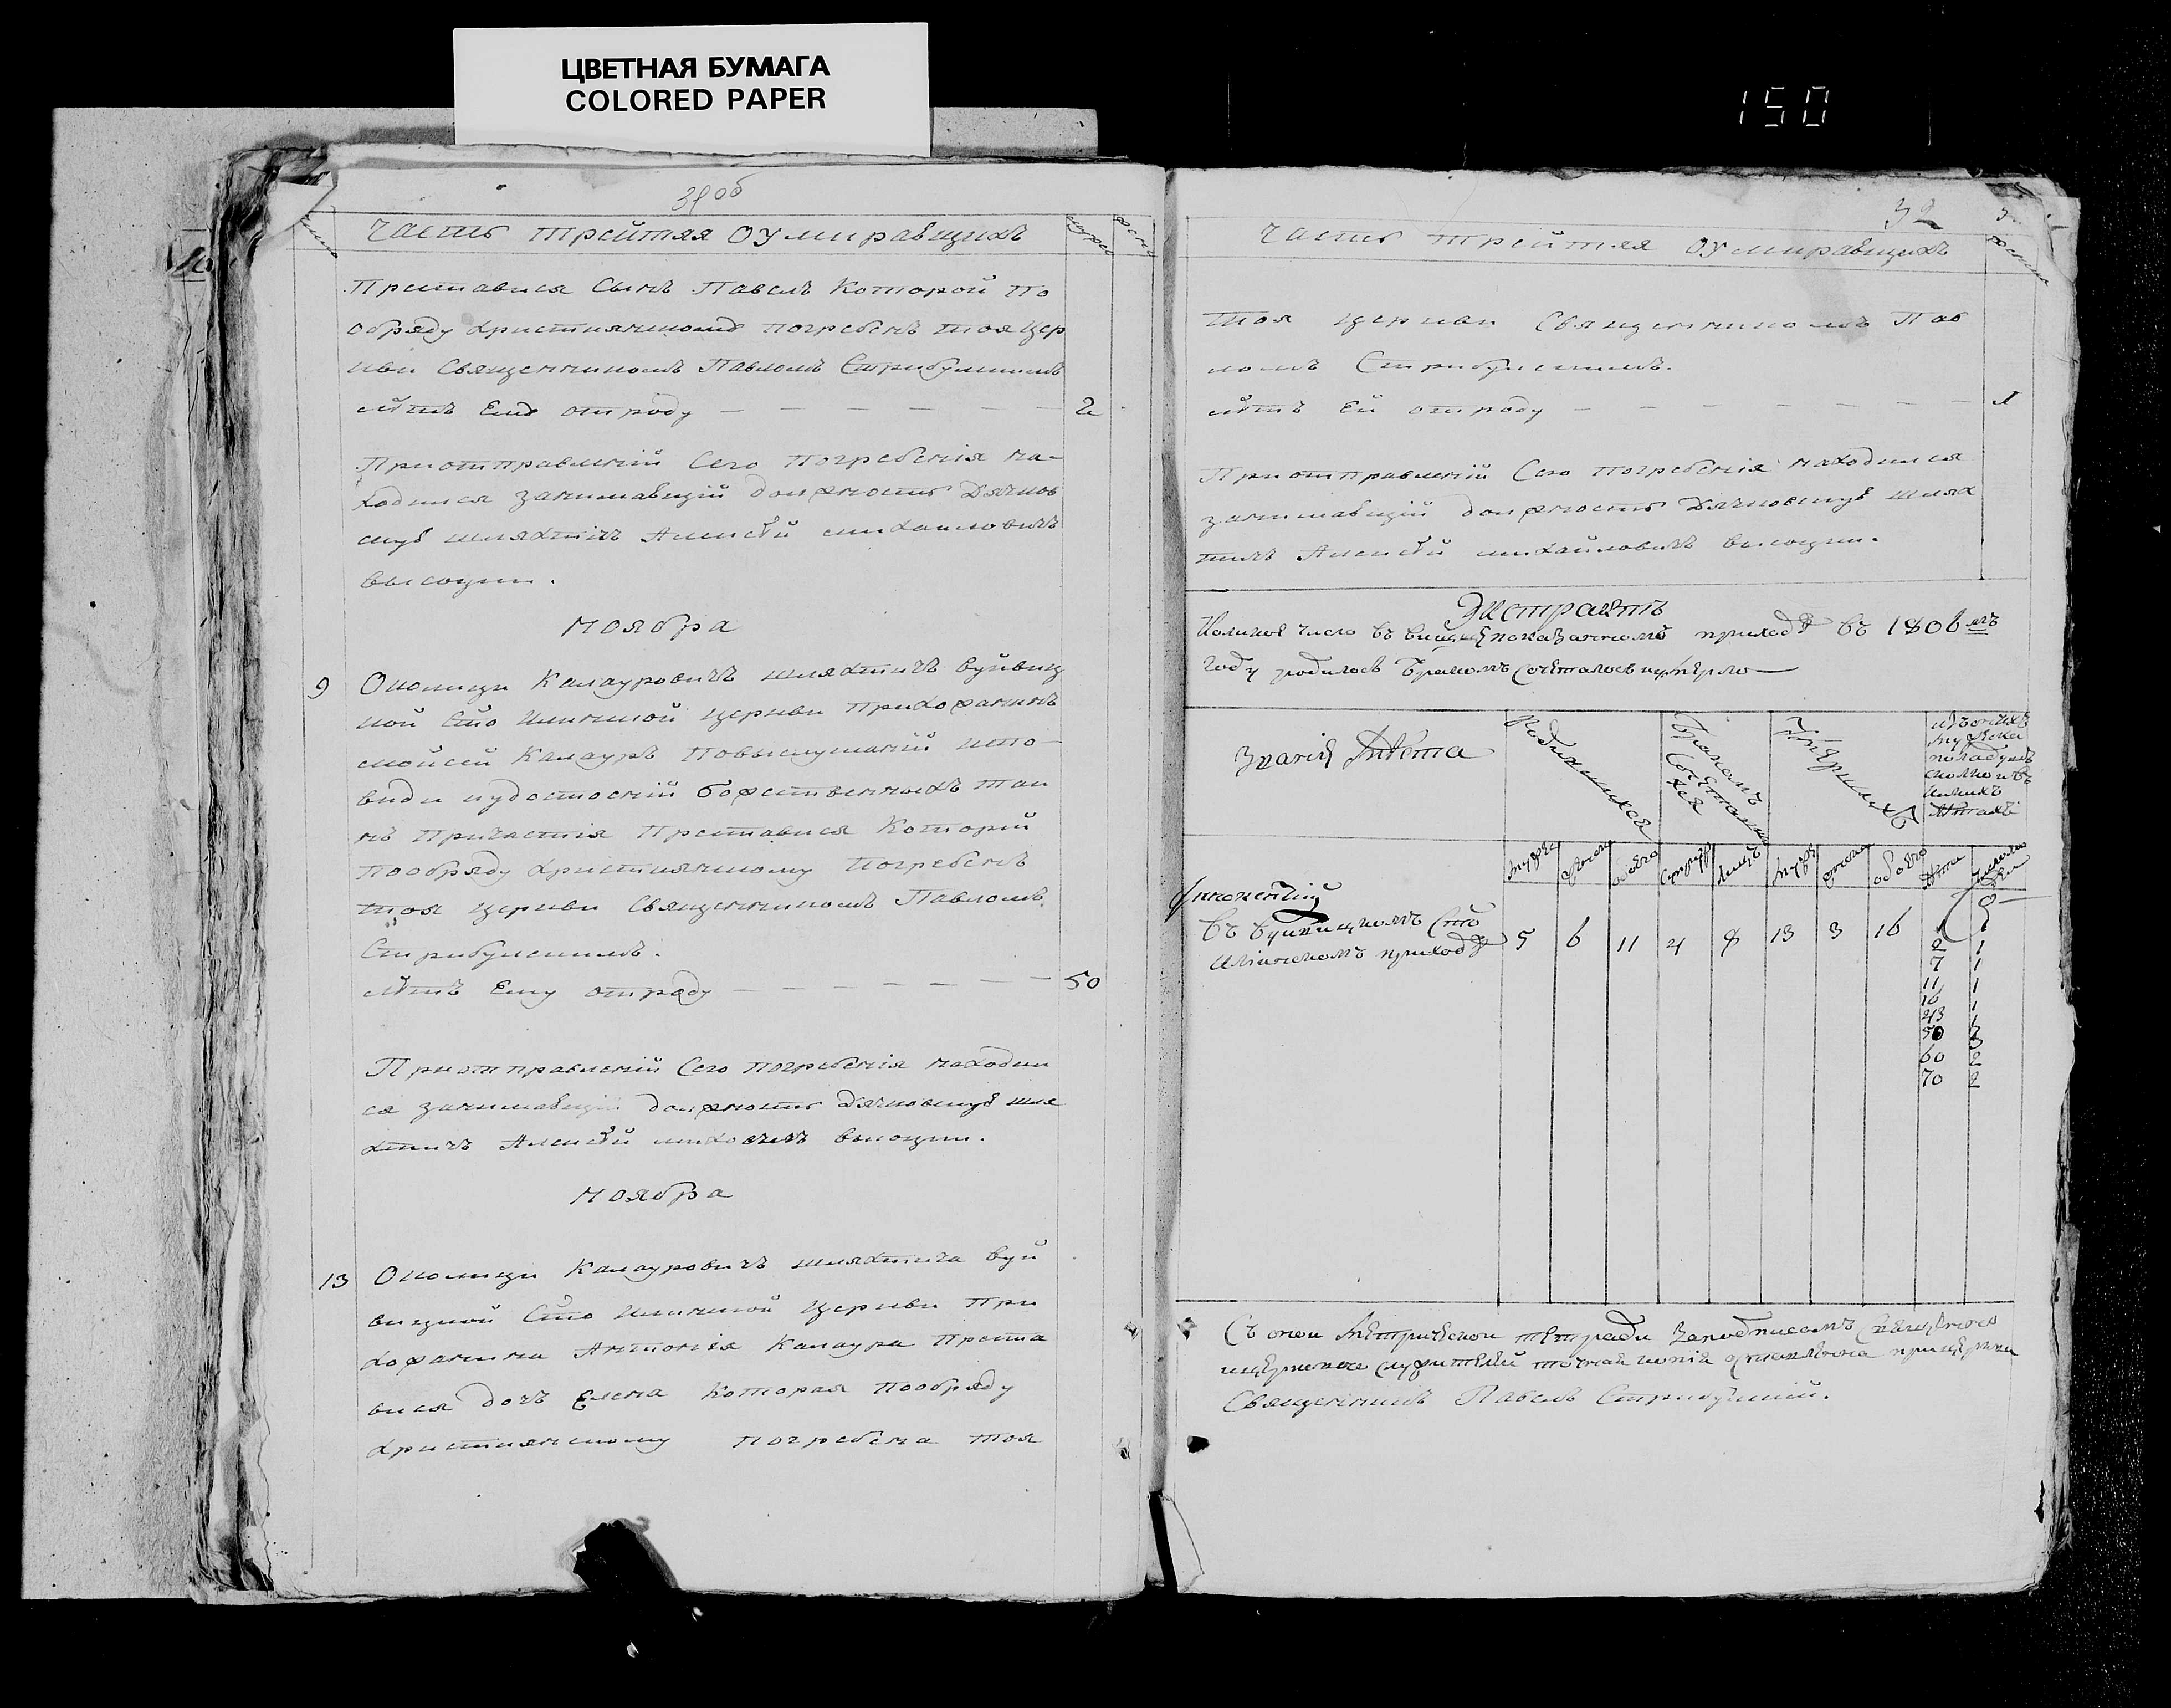 ЦВЕТНАЯ БУМАГА
COLORED PAPER
150
31 об
Часть трейтяя оумиравщихъ
Преставися Сынъ Павелъ Которой по
обряду християнскомъ погребенъ тоя цер
кви Священникомъ Павломъ Стрибулскимъ
лѣтъ Ему отроду — — — — — — — 2
Приотправлений Сего погребения на-
ходился занимавщій должность Дячков
скую шляхтичь Алексѣй михаиловичъ
высоцки.
Ноября
9 Околицы Калауровичъ шляхтичъ вуйвиц
кой Сто Илинской церкви прихожанинъ
мойсей Калауръ повыслушаній испо-
веди иудостоеній божественныхъ таи
нъ причастія Преставися Которій
пообряду християнскому погребенъ
тоя церкви Священникомъ Павломъ
Стрибулскимъ.
лѣтъ Ему отроду — — — — — — — 50
Приотправленій Сего погребенія находил
ся занимавщій должность Дячковскую шля
хтичъ Алексѣй высоцки.
Ноября
13 Околицы Калауровичъ шляхтича вуй
вицкой Сто Илинской Церкви При
хожанина Антонія Калаура Преста
вися дочъ Елена Которая пообряду
християнскому погребена тоя
32
Часть трейтяя оумиравщихъ
тоя церкви Священникомъ Пав
ломъ Стрибулскимъ.
лѣтъ Ей отроду — — — — — — — 1
Приотправленій Сего погребенія находился
занимавщій должность Дячковскую шлях
тичъ Алексѣй михайловичъ высоцки.
Экстрактъ
Коликое число въ вышепоказанномъ приходѣ въ 1806мъ
году родилось бракомъ сочеталось иумерло —
Званія мѣста
Родившихся
Бракомъ
сочетавших
ся
Умершихъ
изъ онихъ
мужеска
поладушъ
сколко ивъ
какихъ
лѣтахъ
мужеска
женска
обоего
супруг
лицъ
муж
женска
обоего
лѣта
число
въ Вуйвицкомъ Сто
Илинскомъ приходѣ 5 6 11 4 8 13 3 16
1 1
2 1
7 1
11 1
16 1
43 1
50 3
60 2
70 2
Съ онои метрическои тетради заподписомъ Священно
ицерковно служителей точная копія оставлена прицеркви
Священникъ Павелъ Стрибулский.